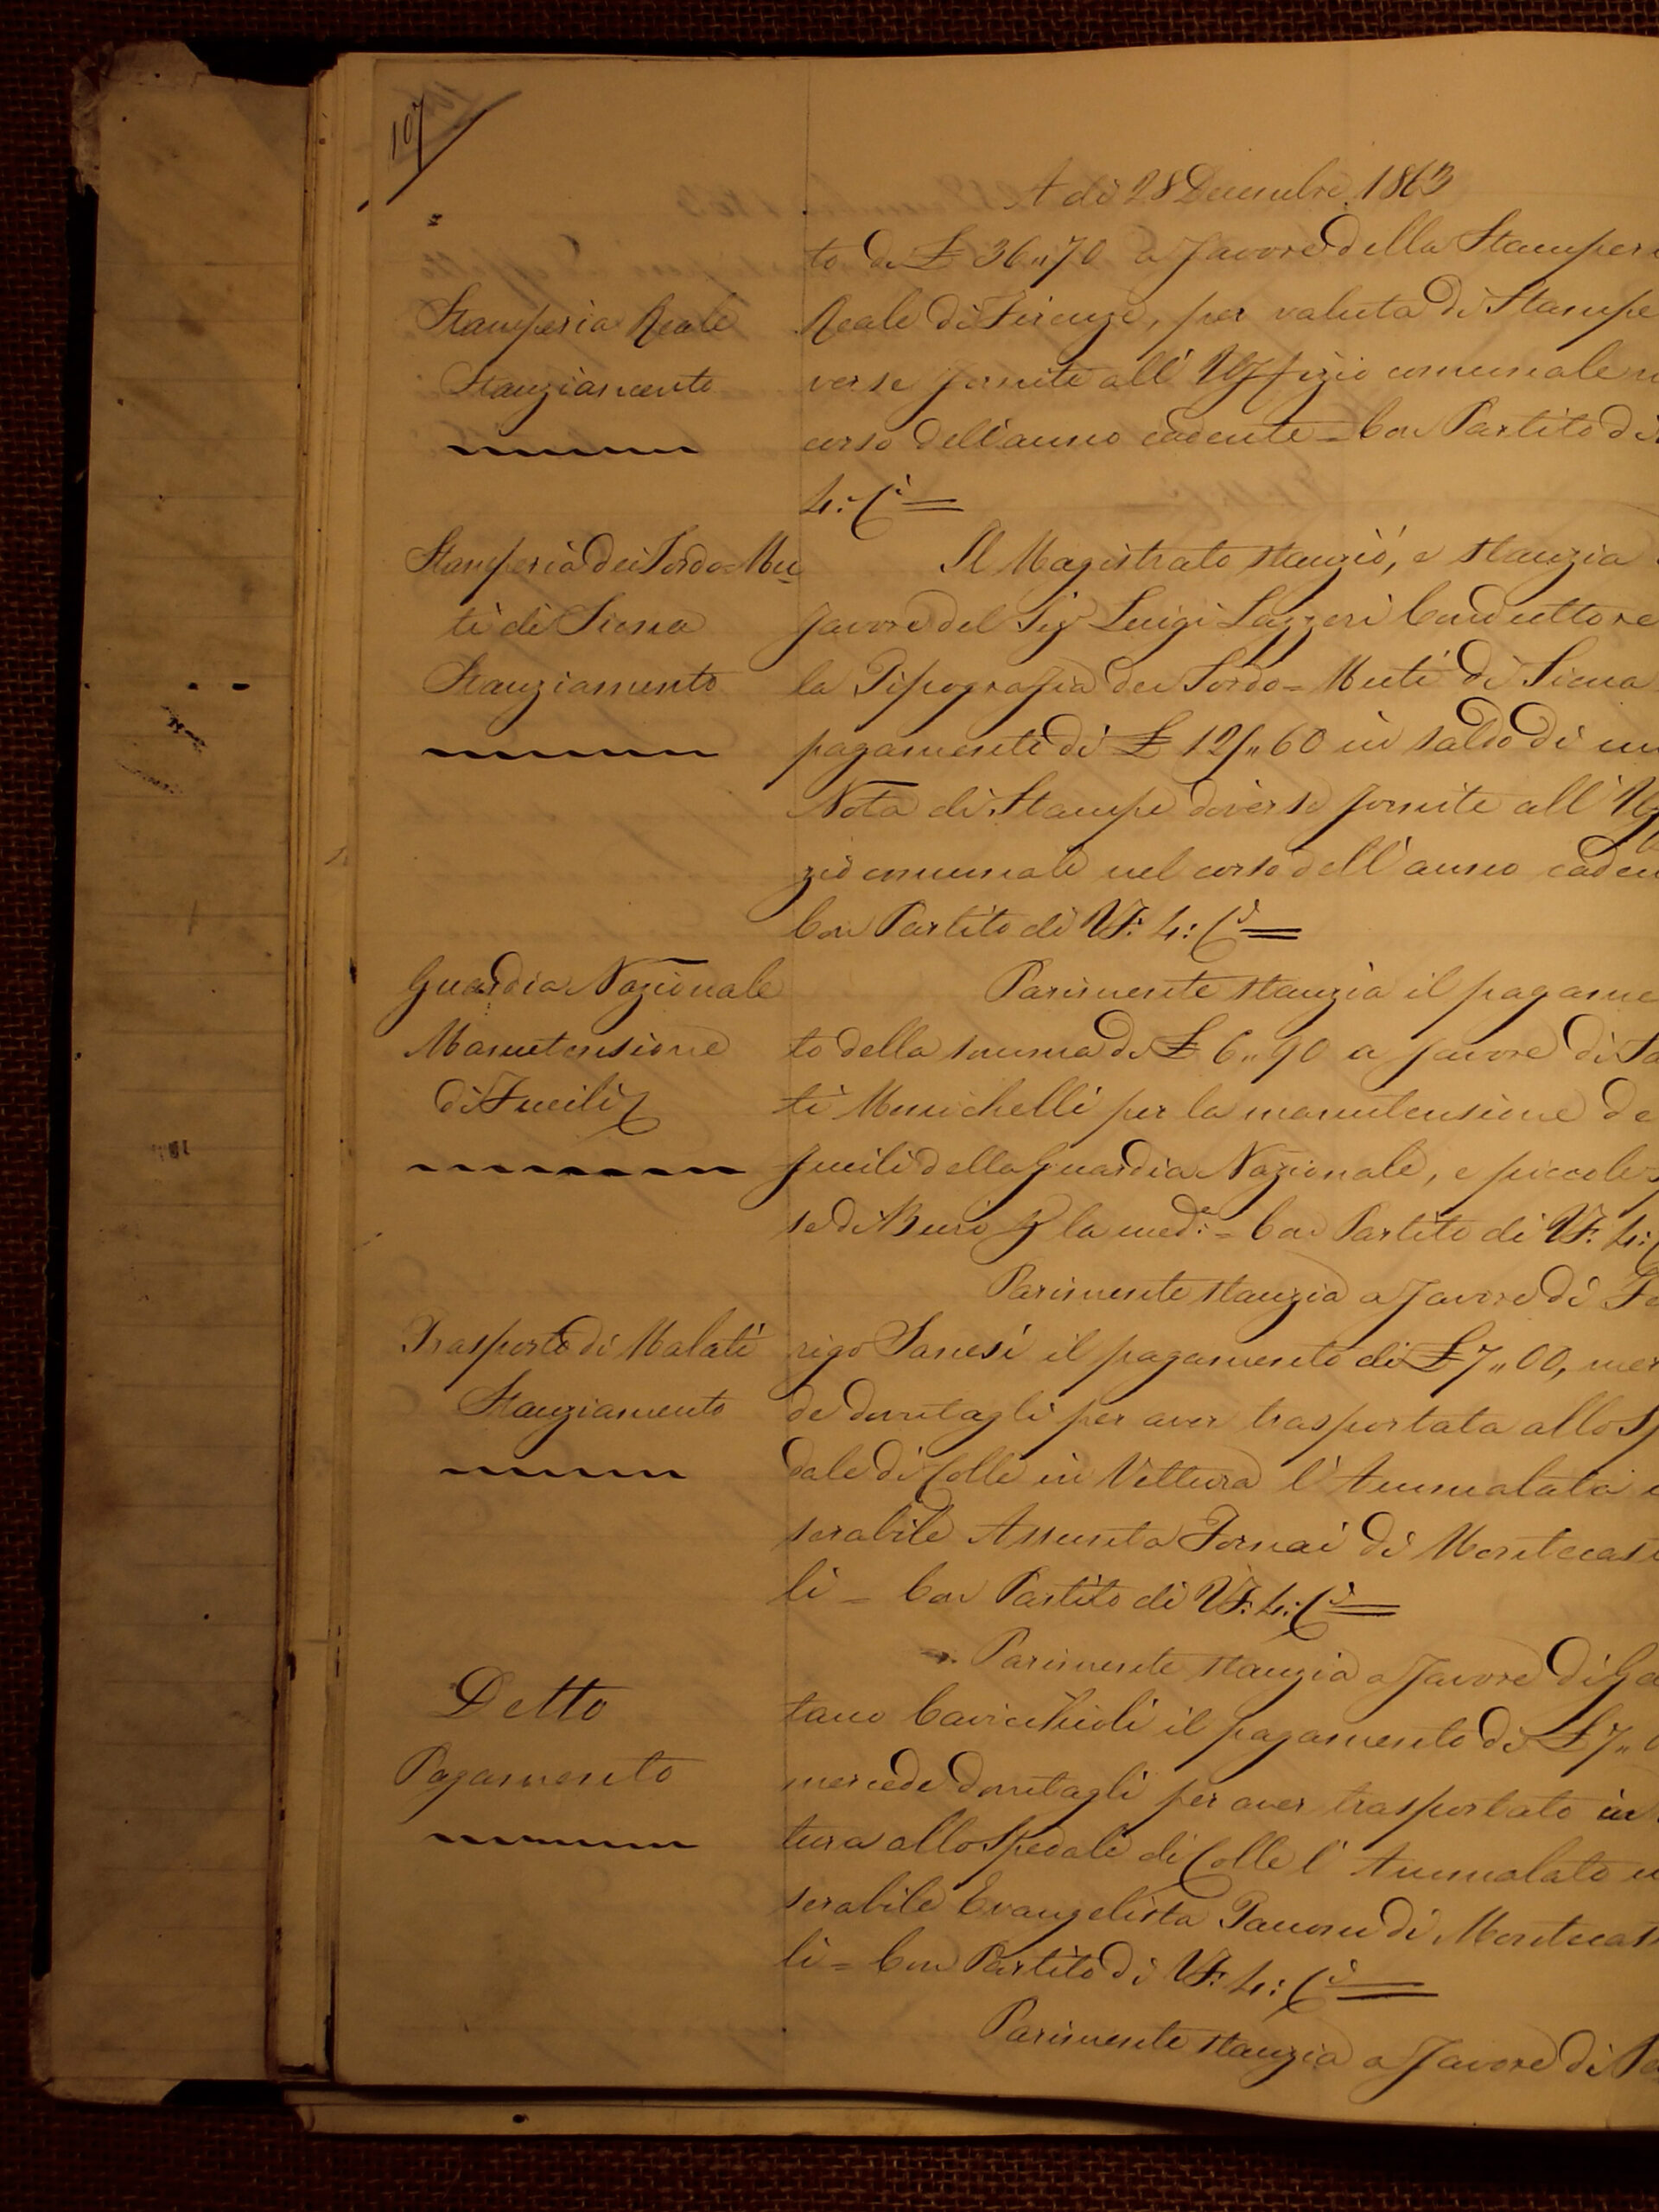 107
A dì 28 Decembre 1863
to di £ 36,,70 a favore della Stamperi
Stamperia Reale
Reale di Firenze, per valuta di Stampe
Stanziamento
verse fornite all'Uffizio comunale n
corso dell'anno cadente = Con Partito di
4: C.i =
Stamperia dei Sordo=Mu
Il Magistrato stanziò, e stanzia
ti di Siena
favore del Sig.r Luigi Lazzeri Conduttore
Stanziamento
la Tipografia dei Sordo=Muti di Siena
pagamento di £ 121,,60 in saldo di un
Nota di Stampe diverse fornite all'Uf
zio comunale nel corso dell'anno caden
Con Partito di VF. 4: C.i =
Guardia Nazionale
Parimente stanzia il pagame
Manutensione
to della somma di £ 6,,90 a favore di Sa
di Fucili
ti Menichelli per la manutensione de
fucili della Guardia Nazionale, e piccole s
se di Buro p la med.e = Con Partito di VF. 4: C
Parimente stanzia a favore di Fe
Trasporto di Malati
rigo Sanesi il pagamento di £ 7,,00, mer
Stanziamento
de dovutagli per aver trasportata allo Sp
dale di Colle in Vettura l'Ammalata
serabile Assunta Fornai di Montecast
li = Con Partito di VF. 4: C.i =
Parimente stanzia a favore di Ga
Detto
tano Cavicchioli il pagamento di £ 7,,0
Pagamento
mercede dovutagli per aver trasportato in
tura allo Spedale di Colle l'Ammalato
serabile Evangelista Pacconi di Montecast
li = Con Partito di VF. 4: C.i =
Parimente stanzia a favore di